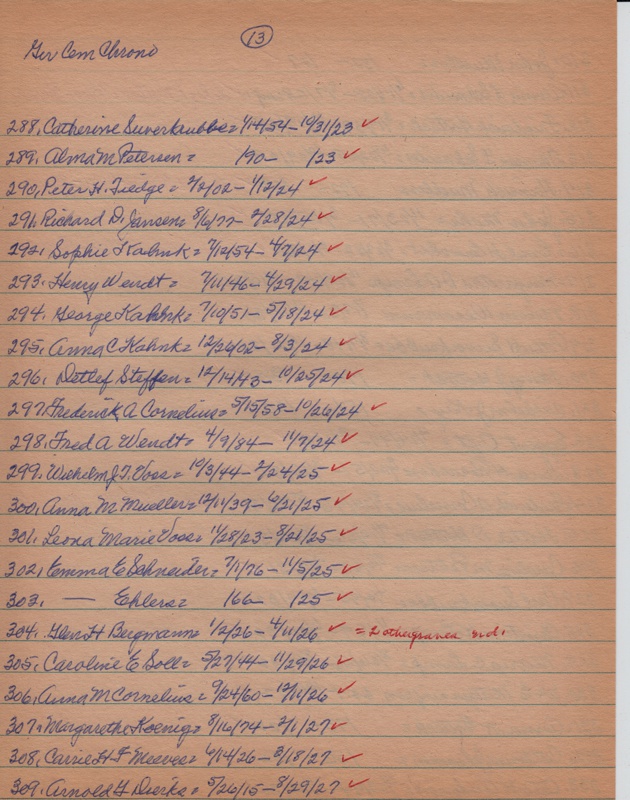 13
Ger Cem Chrono
288. Catherine Suverkrubbe = 1/14/54 - 10/31/23 ✓
289. Alma M Petersen = /90 - /23 ✓
290. Peter H. Tiedge = 2/2/02 - 1/12/24 ✓
291. Richard D. Jansen = 8/6/77 - 2/28/24 ✓
292. Sophie Kahnk = 7/12/54 - 4/7/24 ✓
293. Henry Wendt = 7/11/46 - 4/29/24 ✓
294. George Kahnk = 7/10/51 - 5/18/24 ✓
295. Anna C Kahnk = 12/26/02 - 8/3/24 ✓
296. Detlef Steffen = 12/14/43 - 10/25/24 ✓
297. Frederick A Cornelius = 5/15/58 - 10/26/24 ✓
298. Fred A Wendt = 4/9/84 - 11/7/24 ✓
299. Wilhelm J. T. Voss = 10/3/44 - 2/24/25 ✓
300. Anna M Mueller = 12/11/39 - 6/21/25 ✓
301. Leona Marie Voss = 11/28/23 - 8/21/25 ✓
302. Emma E Schneider = 7/1/76 - 11/5/25 ✓
303. — Ehlers = /66 - /25 ✓
304. Glen H Bergmann = 1/2/26 - 4/11/26 ✓ = 2 other graves
305. Caroline E Soll = 5/27/44 - 11/29/26 ✓
306. Anna M Cornelius = 9/24/60 - 12/11/26 ✓
307. Margarethe Koenig = 8/16/74 - 2/1/27 ✓
308. Carrie H F Meeves = 6/14/26 - 3/18/27 ✓
309. Arnold G Dierks = 5/26/15 - 8/29/27 ✓